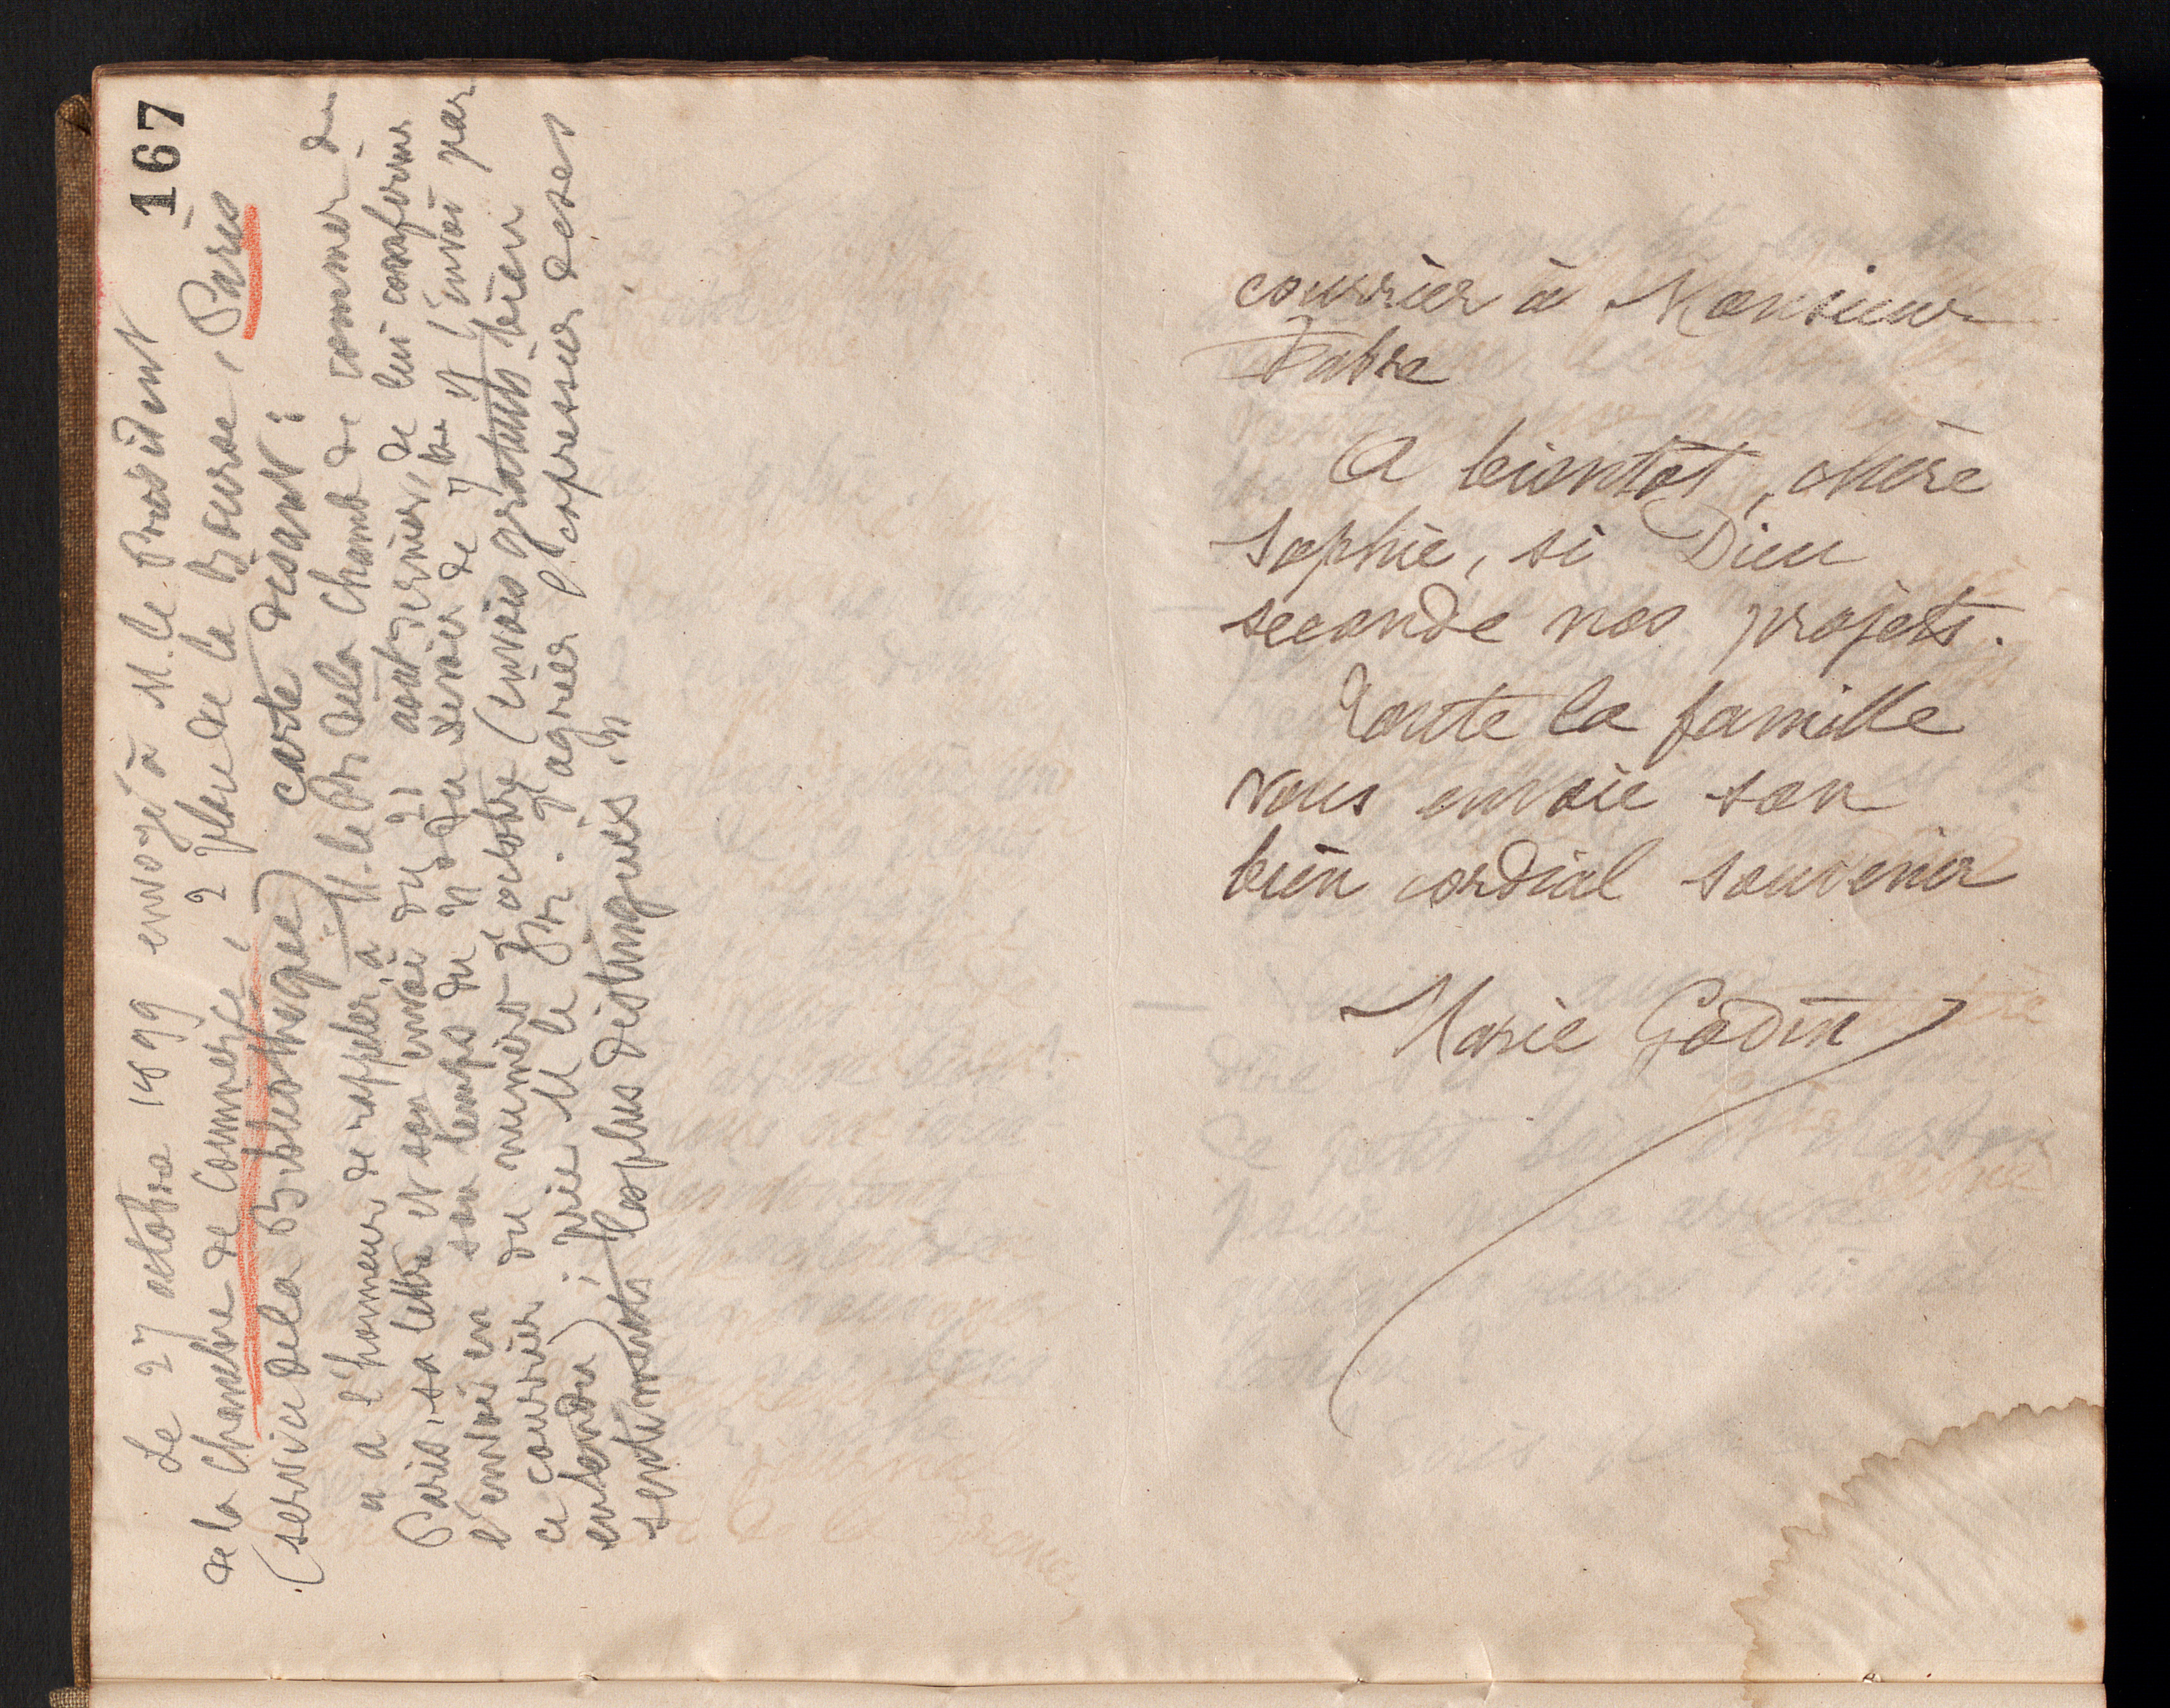 167
Le 27 octobre 1899 envoyé à M. le Président
de la Chambre de Commerce, 2 place de la Bourse, Paris
(service de la Bibliothèque) carte disant :
a l'honneur de rappeler à M. le Pr. de la Chamb de commer de
Paris, sa lettre et son envoi du 21 août dernier, de lui confirmer
l'envoi en son temps du n° du devoir de 7bre et l'envoi par
ce courrier du numéro d'octobre (envois gratuits bien
entendu) ; prie M le Pr. d'agréer l'expression de ses
sentiments les plus distingués.
courrier à Monsieur
Fabre
A bientôt, chère
Sophie, si Dieu
seconde nos projets.
Toute la famille
vous envoie son
bien cordial souvenir
Marie Godin